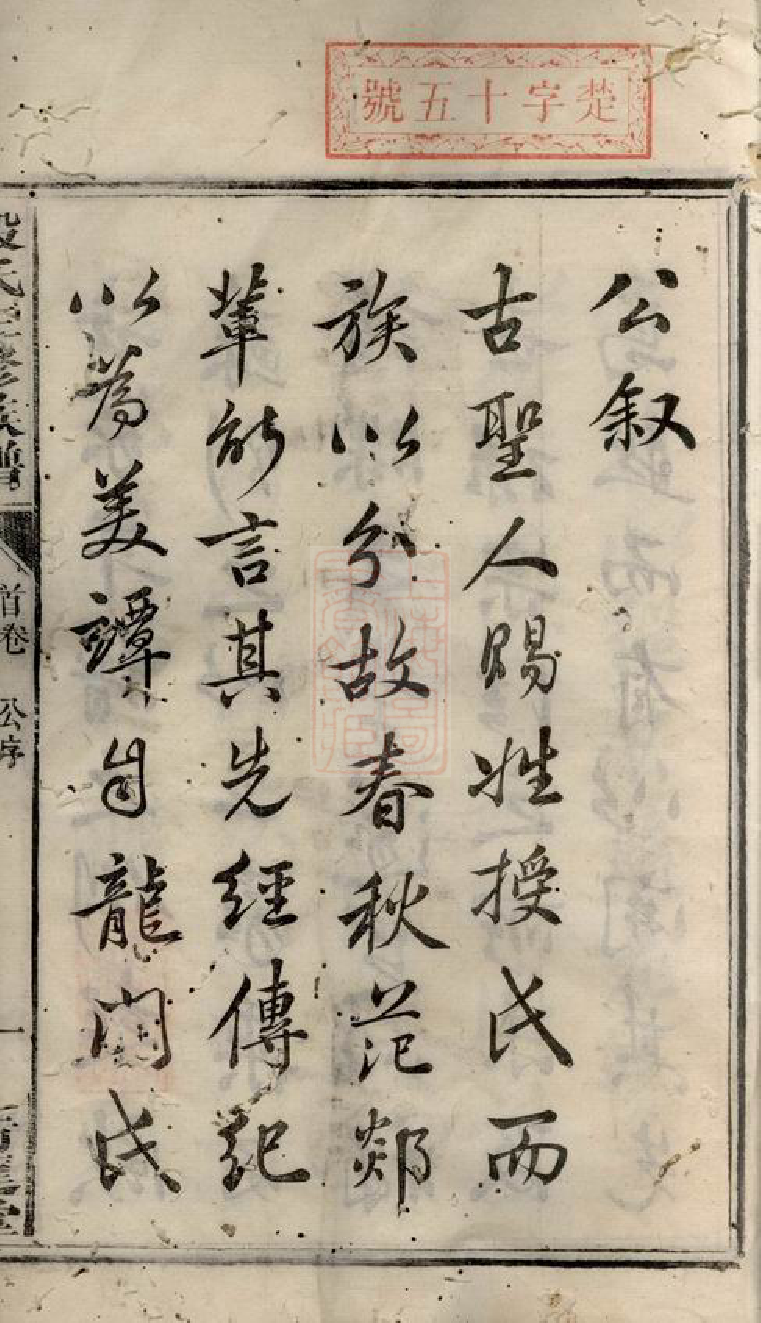 楚字十五號
公叙
古聖人賜姓授氏而
族以分故春秋范郯
輩能言其先經傳記
以為美譚自龍門氏
氏三修族譜
首卷 公序
一
堂